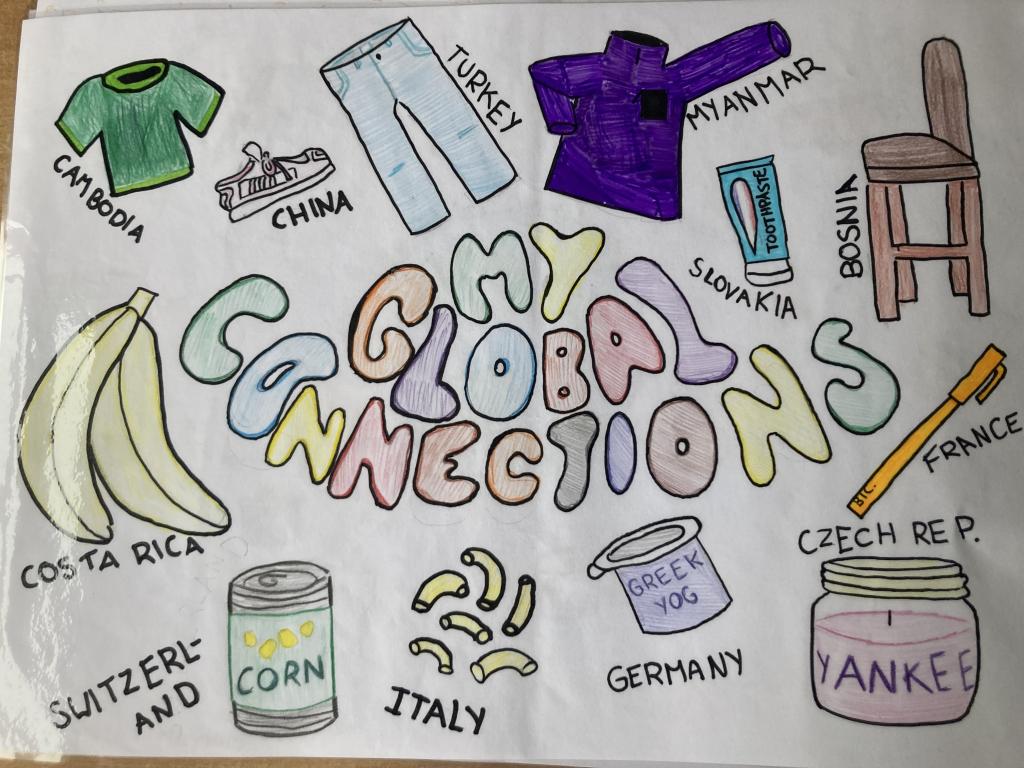 TURKEY
MYANMAR
CAMBODIA
CHINA
TOOTHPASTE
SLOVAKIA
BOSNIA
MY
GLOBAL
CONNECTIONS
BIC.
FRANCE
COSTA RICA
CZECH REP.
GREEK
YOG
CORN
YANKEE
SWITZERL-
AND
ITALY
GERMANY